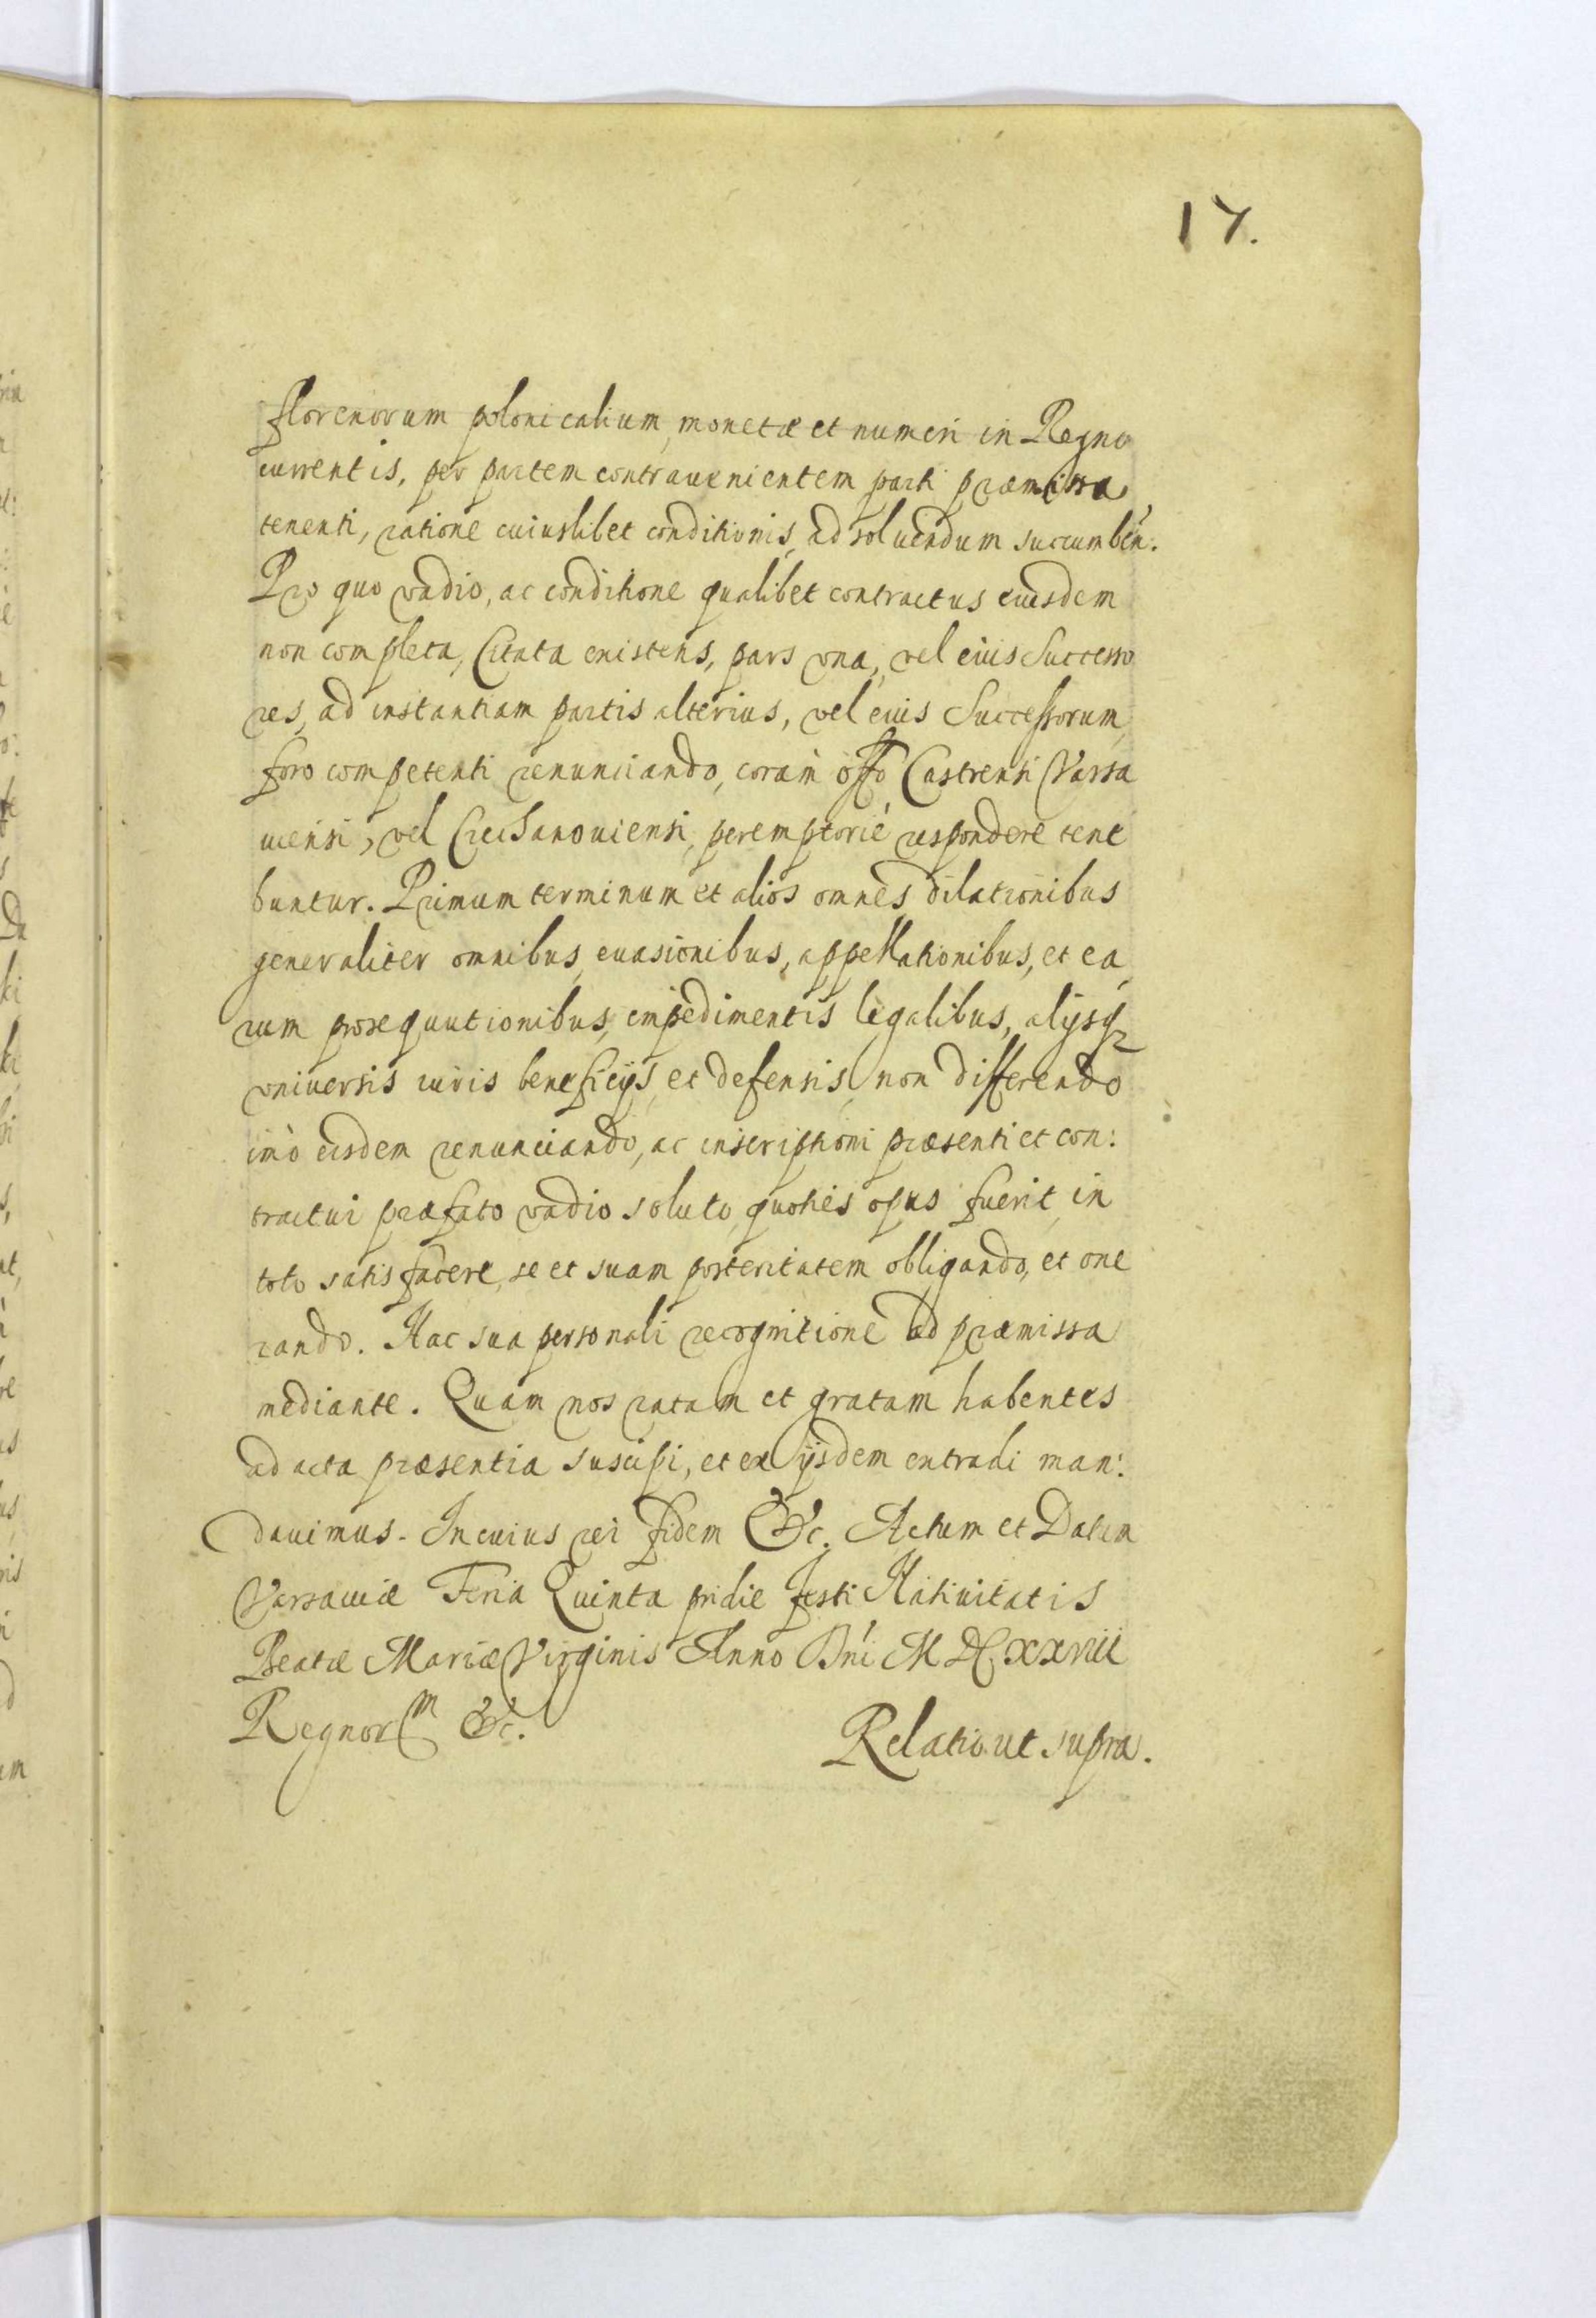 17.
florenorum polonicalium, monetæ et numeri in Regno
currentis, per partem contravenientem parti præmissa
tenenti, ratione cuiuslibet conditionis, ad soluendum succumben:
Pro quo vadio, ac conditione qualibet contractus eiusdem
non completa, Citata existens, pars vna, vel eius Successo
res, ad instantiam partis alterius, vel eius Successorum,
foro competenti renunciando, coram offo Castrensi Varsa
uiensi, vel Ciechanouiensi, peremptorie respondere tene
buntur. Primum terminum et alios omnes dilationibus
generaliter omnibus, euasionibus, appellationibus, et ea
rum prosequutionibus, impedimentis legalibus, alijsq
vniuersis iuris beneficijs, et defensis, non differendo
imò eisdem renunciando, ac inscriptioni præsenti et con:
tractui præfato vadio soluto, quoties opus fuerit, in
toto satisfacere, se et suam posteritatem obligando, et one
rando. Hac sua personali recognitione ad præmissa
mediante. Quam nos ratam et gratam habentes
ad acta præsentia suscipi, et ex ijsdem extradi man:
dauimus. In cuius rei fidem &c. Actum et Datum
Varsauiæ Feria Quinta pridie festi Natiuitatis
Beatæ Mariæ Virginis Anno Dni M DC XXVIII
Regnorm &c.
Relatio ut supra.